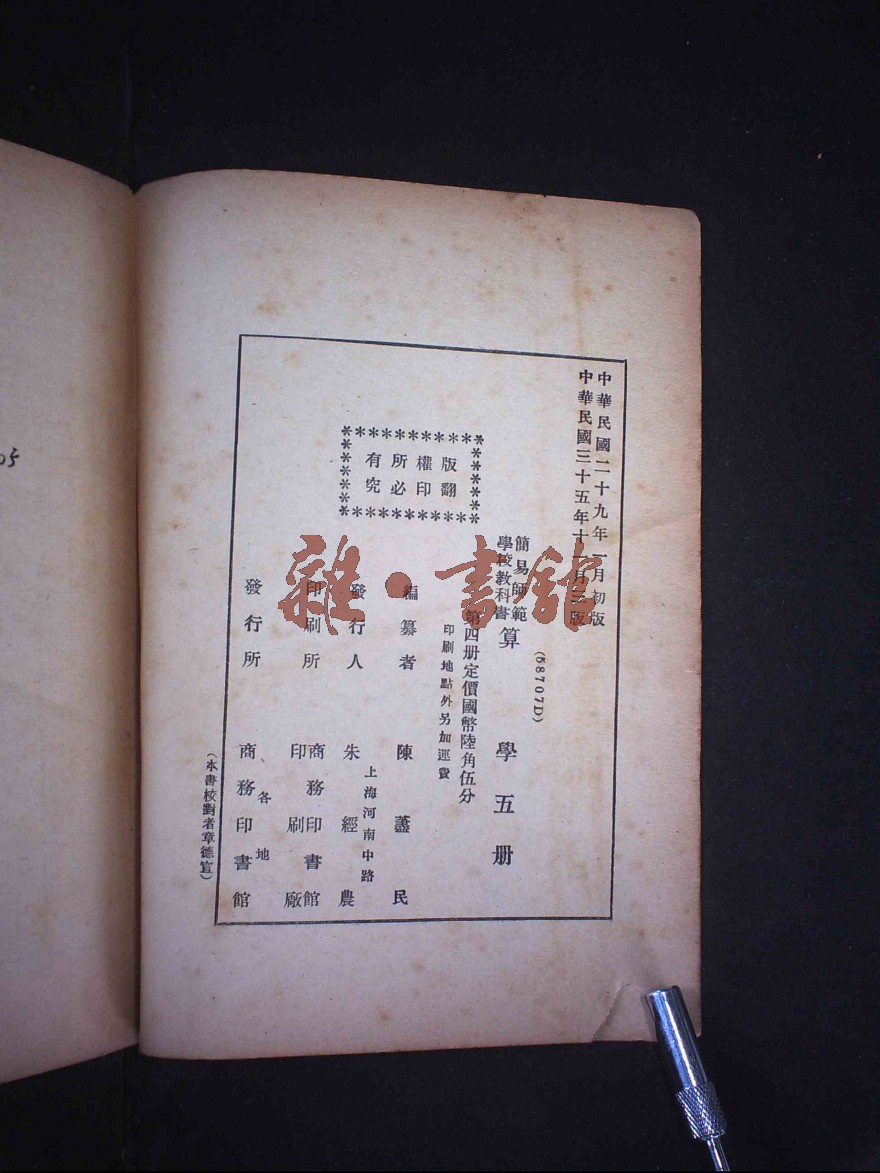 中華民國二十九年一月初版
中華民國三十五年十一月三版
(58707D)
簡易師範
學校教科書
算學五册
第四册定價國幣陸角伍分
印刷地點外另加運費
版權所有
翻印必究
編纂者 陳藎民
上海河南中路
發行人 朱經農
印刷所 商務印書館
印刷廠
發行所 各地
商務印書館
(本書校對者章德宣)
雜·書館
05